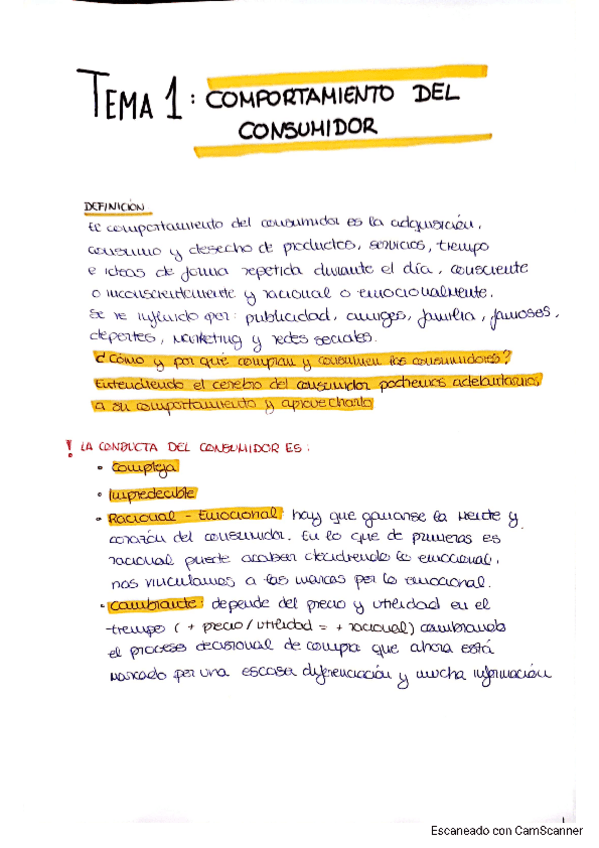 TEMA 1: COMPORTAMIENTO DEL
CONSUMIDOR
DEFINICIÓN
El comportamiento del consumidor es la adquisición,
consumo y desecho de productos, servicios, tiempo
e ideas de forma repetida durante el día, consciente
o inconscientemente y racional o emocionalmente.
Se ve influido por: publicidad, amigos, familia, famosos,
deportes, marketing y redes sociales.
¿Cómo y por qué compran y consumen los consumidores?
Entendiendo el cerebro del consumidor podremos adelantarnos
a su comportamiento y aprovecharlo
! LA CONDUCTA DEL CONSUMIDOR ES:
• Compleja
• Impredecible
• Racional - Emocional hay que ganarse la mente y
corazón del consumidor. En lo que de primeras es
racional puede acabar decidiendo lo emocional,
nos vinculamos a las marcas por lo emocional.
• Cambiante: depende del precio y utilidad en el
tiempo ( + precio / utilidad = + racional) cambiando
el proceso decisional de compra que ahora está
marcado por una escasa diferenciación y mucha información
1
Escaneado con CamScanner